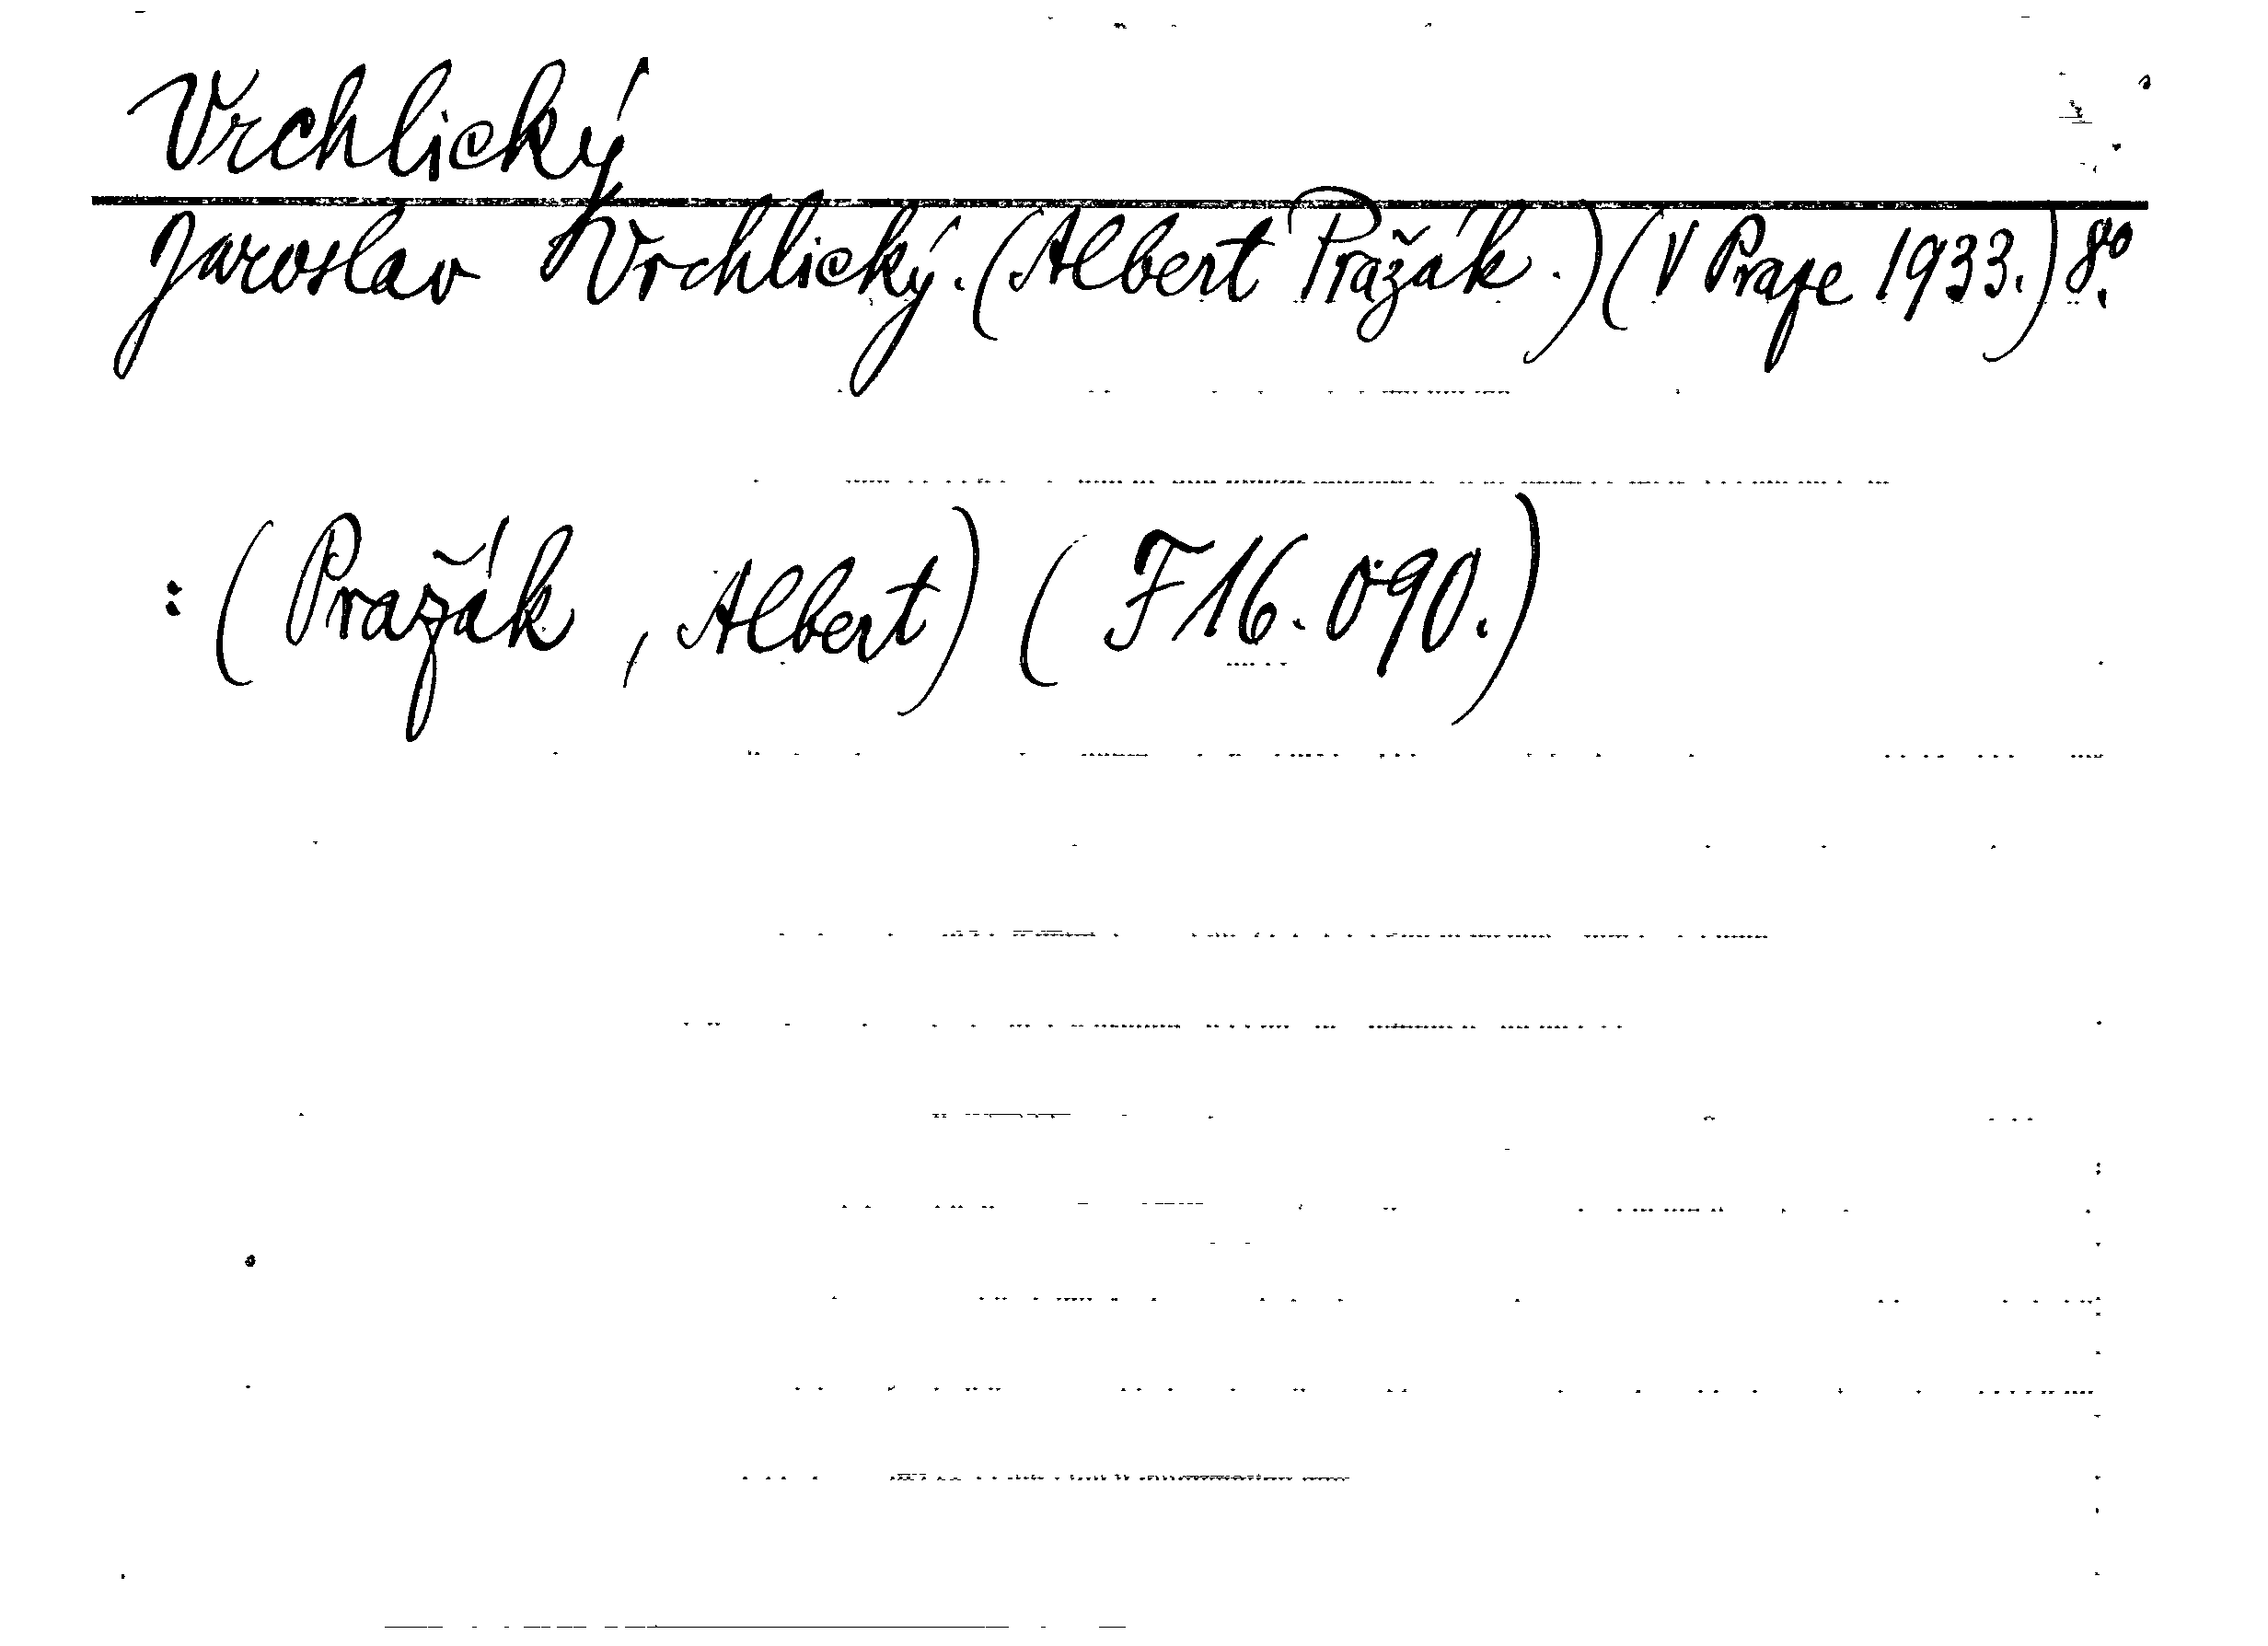 Vrchlický
Jaroslav Vrchlický. (Albert Pražák.) (V Praze 1933.) 8º.
: (Pražák, Albert) (F 16.090.)